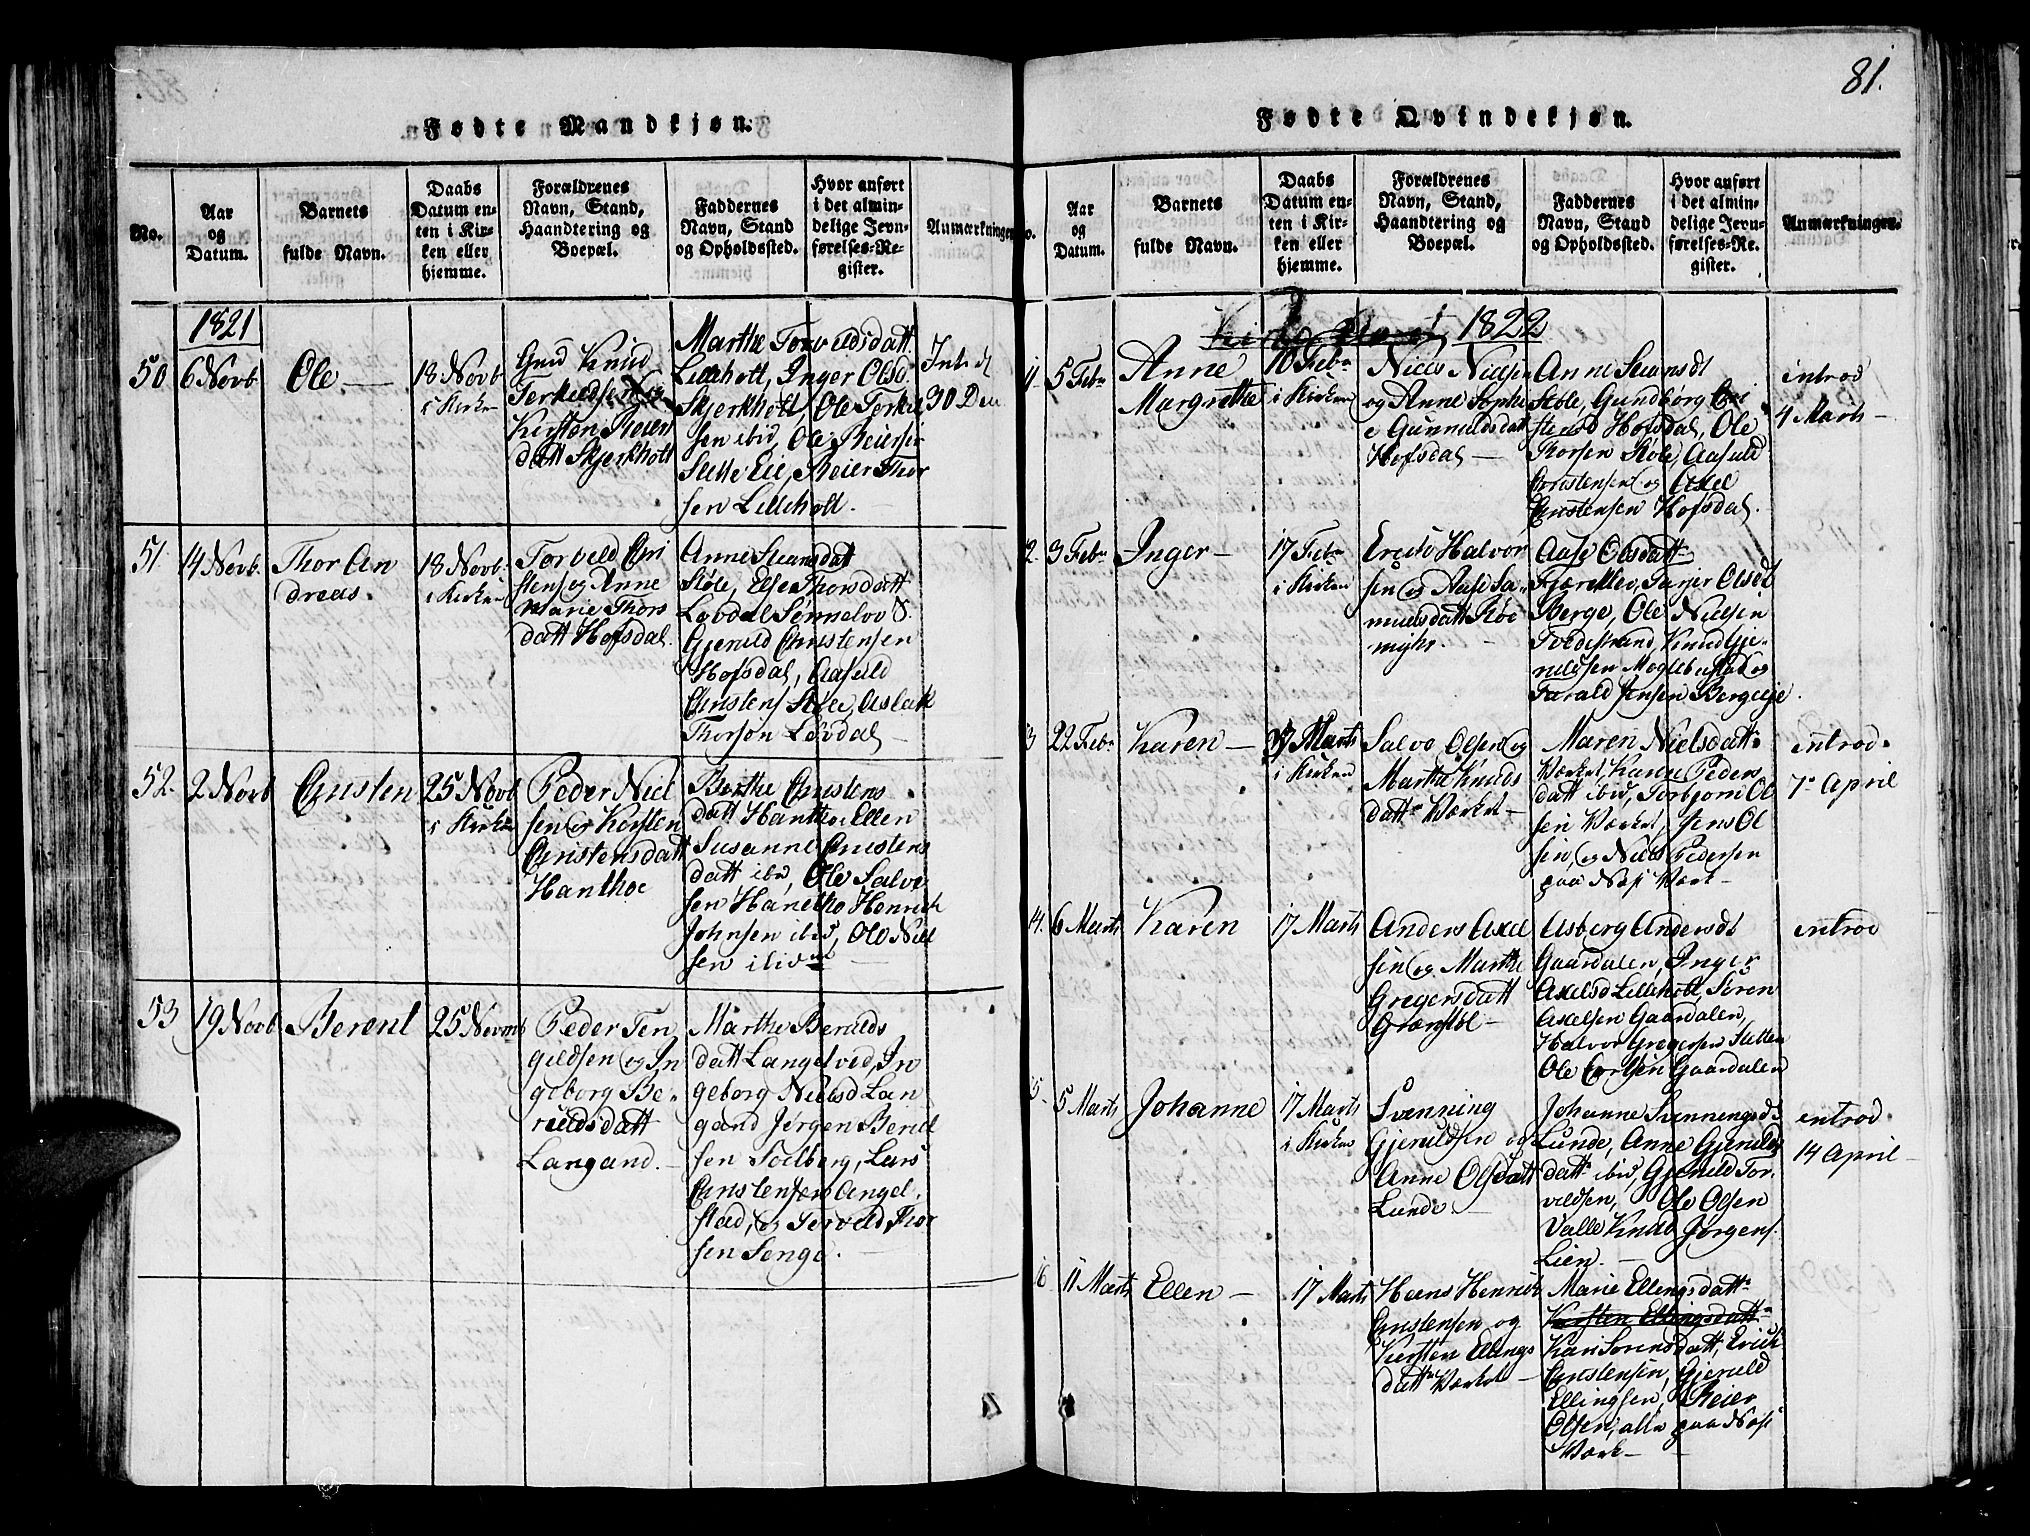 Fødte Mandkjøn.
No.
Aar
og
Datum.
Barnets
fulde Navn.
Daabs
Datum en-
ten i Kir-
ken eller
hjemme.
Forældrenes
Navn, Stand,
Haandtering og
Boepæl.
Faddernes
Navn, Stand
og Opholdssted.
Hvor anført
i det almin-
delige Jevn-
førelses-Re-
gister.
Anmærkninger
1821
50
6 Novb
Ole —
18 Novb
i Kirken
Gmd Knud
Terkildsen
Kirsten Reiers
datt Skjerkholt
Marthe Torvildsdatt
Lilleholt, Inger Olsd.
Skjerkholt Ole Terkil
sen ibid, Ole Reiersen
Slette Eie, Reier Thor
sen Lilleholt.
Introd
30 Dec
51.
14 Novb.
Thor An
dreas.
18 Novb.
i Kirken
Torveld Chri
stens og Anne
Marie Thors
datt Hofsdal.
Anne Steansdatt
Støle, Else Thorsdatt
Løvdal
Gjeruld Christensen
Hofsdal, Aasuld
Christens Støle, Aslak
Thorson Løvdal —
52.
2 Novb
Christen
25 Novb
i Kirken
Peder Niel
sen og Kirsten
Christensdatt
Hanthoe
Berthe Christens
datt Hanthoe Ellen
Susanne Christens
datt ibid, Ole Salve
sen Hanetho Henrich
Johnsen ibid, Ole Niel
sen ibid
53
19 Novb
Berent
25 Novmb
Peder Ten
gildsen og In
geborg Be-
rulds datt
Langand. —
Marthe Berulds
datt Langelved, In
geborg Nielsd Lan
gand Jørgen Beruld
sen Solberg, Lars
Christensen Angel
stad, og Terveld Thor
sen Songe. —
81.
Fødte Qvindekjøn.
No.
Aar
og
Datum.
Barnets
fulde Navn.
Daabs
Datum en-
ten i Kir-
ken eller
hjemme.
Forældrenes
Navn, Stand,
Haandtering og
Boepæl.
Faddernes
Navn, Stand
og Opholdssted.
Hvor anført
i det almin-
delige Jevn-
førelses-Re-
gister.
Anmærkninger.
1822
11.
5 Febr
Anne
Margrethe
10 Febr
i Kirken
Niels Nielsen
og Anne Sophi
e Gunnuldsdatt
Hofsdal —
Anne Steansdt
Støle, Gundborg Chri
stensd Hofsdal, Ole
Thorsen Støle, Aasuld
Christensen og Axel
Christensen Hofsdal.
introd
4 Marts —
12.
3 Febr
Inger —
17 Febr
i Kirken
Erich Halvor
sen og Aase Sa-
muelsdatt Røe
myhr. —
Aase Olsdatt
Fiærekløv, Tarjer Olsdt
Berge, Ole Nielsen
Tvedestrand, Knud Gje-
ruldsen Moglebustad og
Tarald Jensen Bergeeje.
13
22 Febr
Karen —
17 Marts
i Kirken
Salve Olsen og
Marthe Knuds
datt Værket —
Maren Nielsdatt
Værket, Karen Peders
datt ibid, Torbjørn Ol
sen Værket, Jens Ol
sen, og Niels Pedersen
paa Næs Værk —
introd.
7. April
14.
6 Marts
Karen
17 Marts
Anders Axel
sen og Marthe
Gregersdatt
Grønstøl —
Asberg Andersdt
Gaardalen, Inger
Axelsd Lilleholt, Søren
Axelsen Gaardalen,
Halvor Gregersen Sletten
Ole Gaardalen
introd
15.
5 Marts
Johanne
17 Marts
i Kirken
Svenning
Gjeruldsen og
Anne Olsdatt
Lunde. —
Johanne Svenningsd
Lunde, Anne Gjerulds
datt ibid, Gjeruld Tor
vildsen, Ole Olsen
Valle Knud Jørgens.
Lien. —
introd.
14 April —
16
11 Marts
Ellen —
17 Marts
Hans Henrich
Christensen og
Kirsten Ellings
datt Værket —
Marie Ellingsdatt
Kirsten Ellingsdatt
Kari Sørensdatt, Erich
Christensen, Gjeruld
Ellingsen, Reier
Olsen, alle paa Næs
Værk —